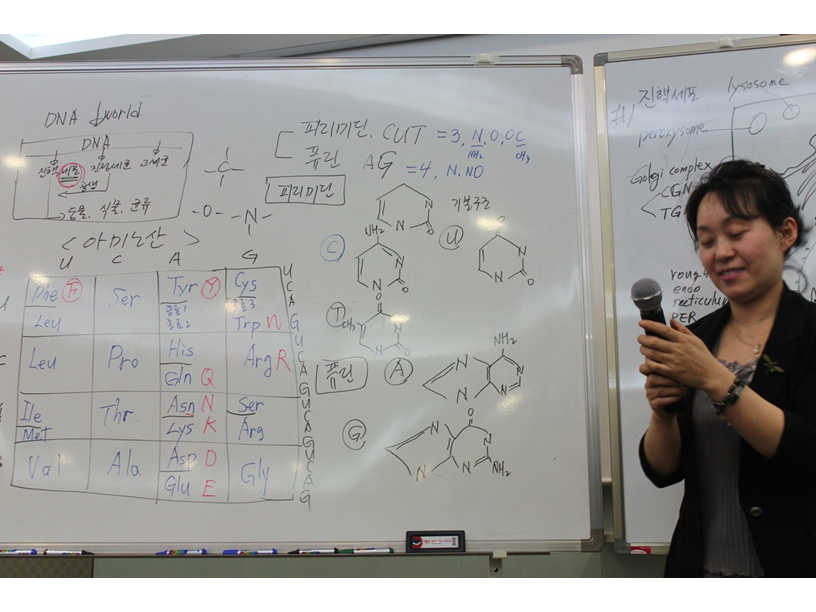 DNA world
DNA
진핵세포 진정세균 고세균
동물, 식물, 균류
<아미노산>
U C A G
Phe F Ser Tyr Y Cys U
종료1 종료3 C
Leu 종료2 Trp A
G
Leu Pro His Arg R U
Gln Q C
A
G
Ile Thr Asn N Ser U
Met Lys K Arg C
A
G
Val Ala Asp D Gly U
Glu E C
A
G
C
-O- -N-
피리미딘, CUT = 3, N, O, OC
NH2 CH3
퓨린 AG = 4, N, NO
피리미딘
N N O
기본구조
C NH2 N N O
U O N N O
T CH3 O N N O
퓨린
A NH2 N N N N
G O N N N N NH2
#1 진핵세포 lysosome
peroxysome
Golgi complex
CGN
TG
rough
endo
reticulum
RER